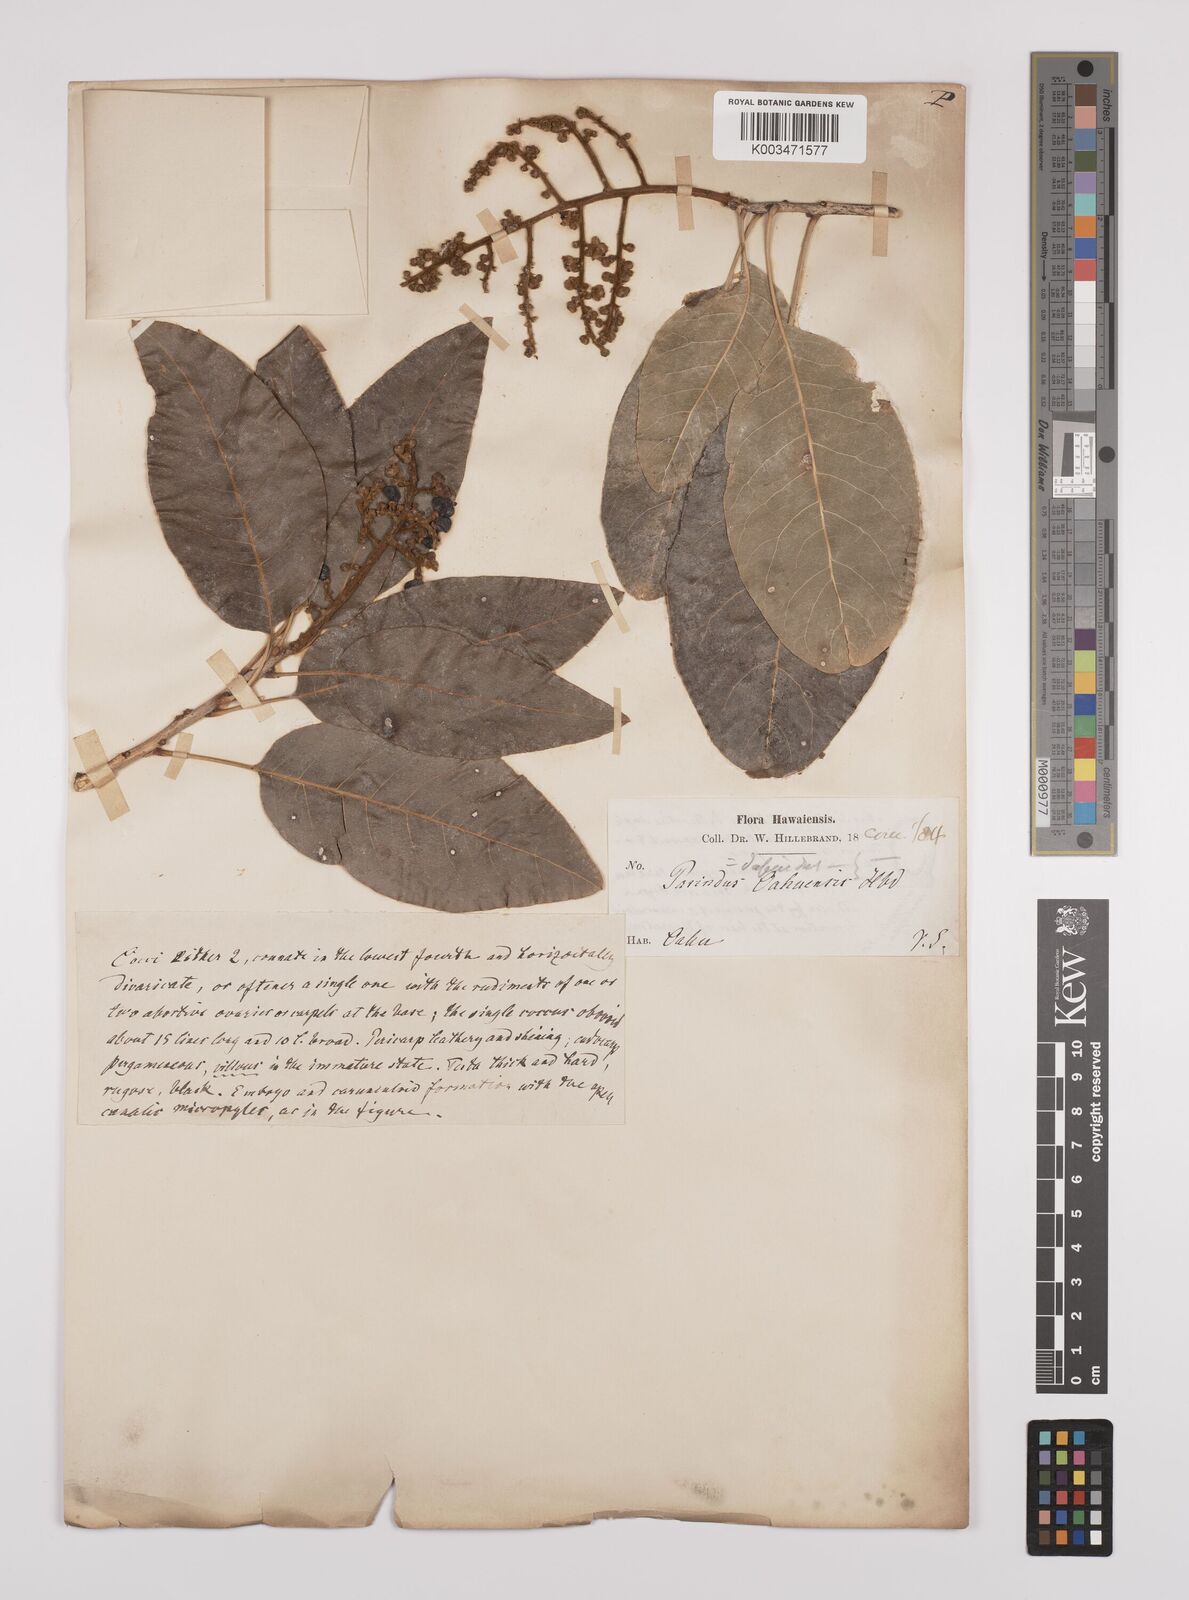 ROYAL BOTANIC GARDENS KEW
K003471577
Flora Hawaiensis.
Coll. Dr. W. Hillebrand, 18
No.
Oahuensis Hbd
Hab. Oahu
V. S.
Cocci either 2, connate in the lowest fourth and horizontally
divaricate, or oftener a single one with the rudiments of one or
two abortive ovaries or carpels at the base; the single coccus obovoid
about 15 lines long and 10 l. broad. Pericarp leathery and shining; endocarp
pergameneous, villous in the immature state. Testa thick and hard,
rugose, black. Embryo and carunculoid formation with the open
canalis micropyles, as in the figure.
inches
centimetres
Density
Don Williams
M000977
Royal Botanic Gardens
Kew
copyright reserved
10
9
8
7
6
5
4
3
2
1
0
cm